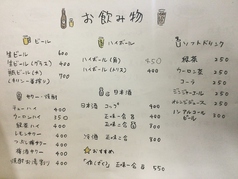 お飲み物
ビール
生ビール 600
生ビール(グラス) 400
瓶ビール(中) 700
(キリン一番搾り)
サワー・焼酎
チューハイ 400
ウーロンハイ 350
緑茶ハイ 400
レモンサワー 400
梅酒サワー 400
焼酎お湯割り 400
ハイボール
ハイボール(角) 450
ハイボール(メガ) 400
日本酒
日本酒 コップ 400
正味一合 800
正味二合
冷酒 正味一合 800
おすすめ
正味一合 550
ソフトドリンク
緑茶 250
ウーロン茶 250
コーラ 250
ジンジャーエール 250
オレンジジュース 250
ノンアルコールビール 400